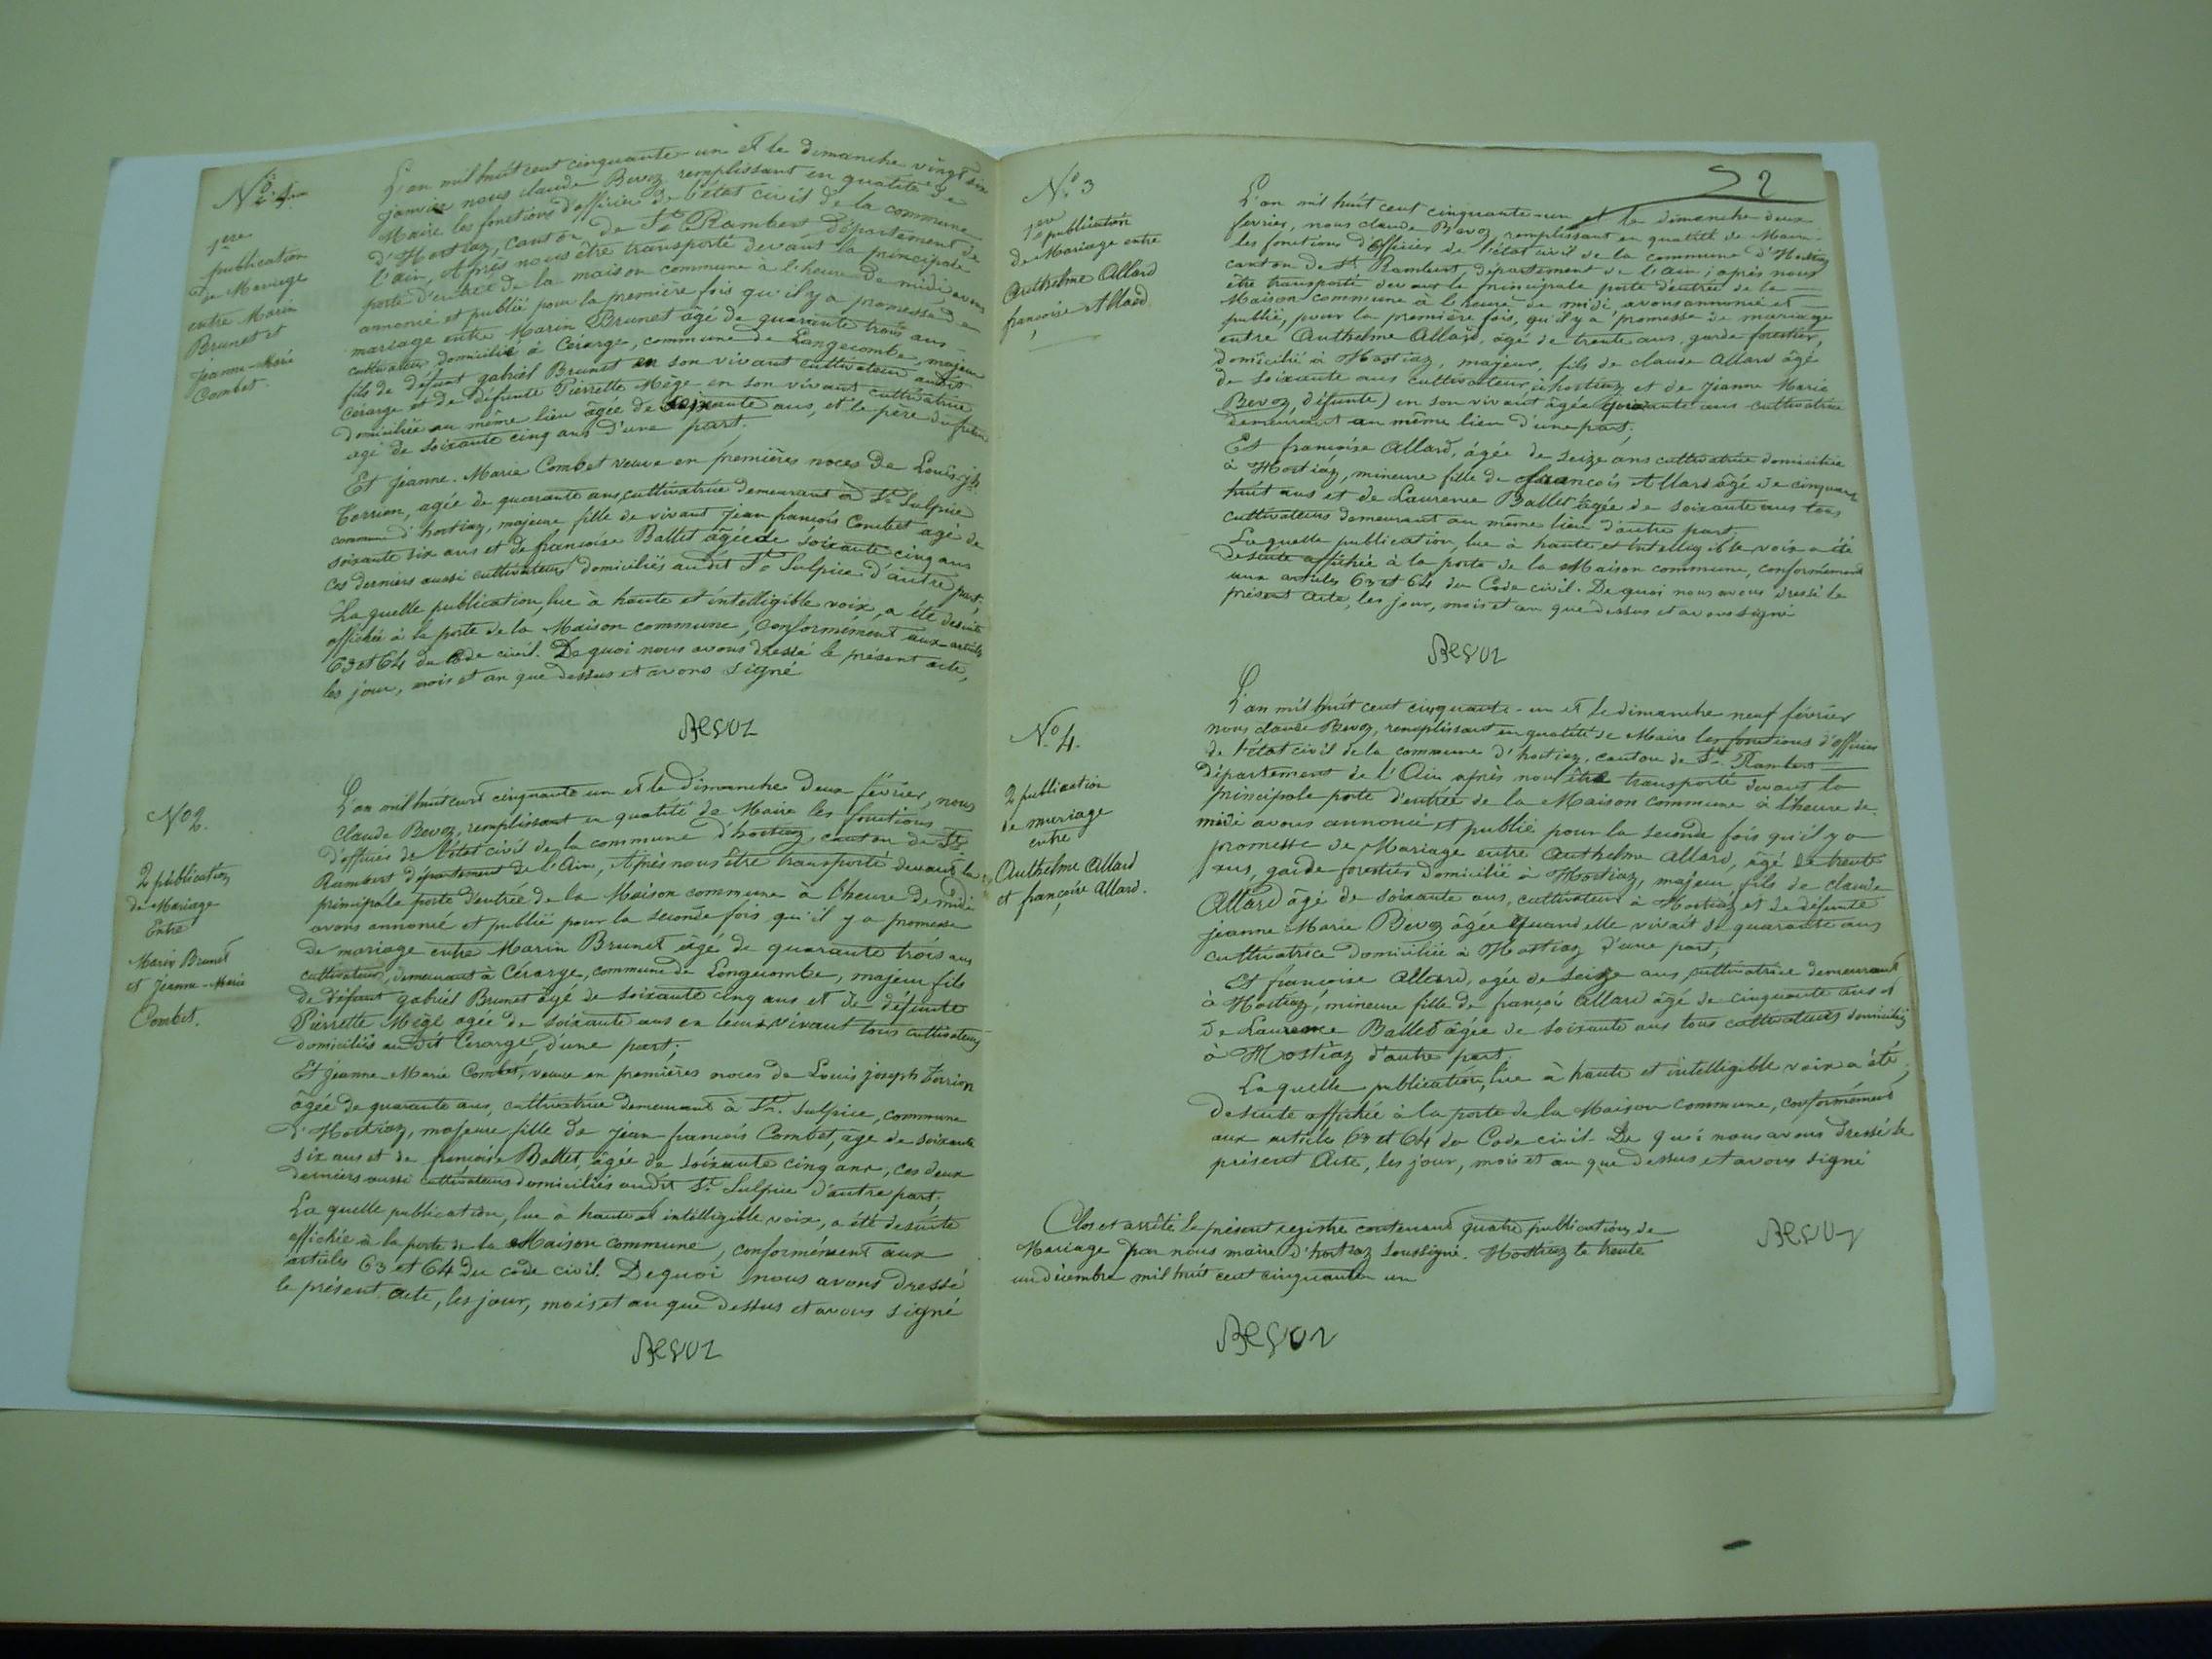 1ere
publication
de Mariage
entre Marin
Brunet et
Jeanne-Marie
Combet.
L'an mil huit cent cinquante-un et le dimanche vingt six
janvier nous claude Bevoz remplissant en qualité de
Maire les fonctions d'officier de l'état civil de la commune
d'Hostiaz, canton de St Rambert département de
l'ain, Après nous être transporté devant la principale
porte d'entrée de la maison commune à l'heure de midi, avons
annoncé et publié pour la première fois qu'il y a promesse de
mariage entre Marin Brunet agé de quarante trois ans
cultivateur domicilié à Cérarge, commune de Longecombe, majeur
fils de défunt gabriel Brunet en son vivant cultivateur audit
Cerarge et de défunte Pierrette Mège en son vivant cultivatrice
domiciliée au même lieu âgée de soixante ans, et le père du futur
agé de soixante cinq ans d'une part.
Et Jeanne-Marie Combet veuve en premières noces de Louis jh
Torrion, agée de quarante ans, cultivatrice demeurant à St Sulpice
commune d'hostiaz, majeure fille de vivant Jean françois Combet agé de
soixante six ans et de françoise Ballet âgée de soixante cinq ans
Ces derniers aussi cultivateurs domiciliés audit St Sulpice d'autre part;
La quelle publication, lue à haute et intelligible voix, a été desuite
affichée à la porte de la Maison commune, conformément aux articles
63 et 64 du Code civil. De quoi nous avons dressé le présent acte,
les jour, mois et an que dessus et avons signé
Bevoz
No 2.
2 publication
de Mariage
Entre
Marin Brunet
et Jeanne-Marie
Combet.
L'an mil huit cent cinquante un et le Dimanche Deux février, nous
Claude Bevoz, remplissant en qualité de Maire les fonctions
d'officier de l'état civil de la commune d'hostiaz, canton de St
Rambert département de l'Ain, Après nous être transporté devant la
principale porte d'entrée de la Maison commune à l'heure de midi
avons annoncé et publié pour la seconde fois qu'il y a promesse
de mariage entre Marin Brunet âgé de quarante trois ans
cultivateur, demeurant à Cérarge, commune de Longecombe, majeur fils
de défunt gabriel Brunet âgé de soixante cinq ans et de défunte
Pierrette Mège agée de soixante ans en leur vivant tous cultivateurs
domiciliés audit Cerarge, d'une part;
Et Jeanne-Marie Combet, veuve en premières noces de Louis joseph Torrion
âgée de quarante ans, cultivatrice demeurant à St. Sulpice, commune
d'Hostiaz, majeure fille de Jean françois Combet, âgé de soixante
six ans et de françoise Ballet, âgée de soixante cinq ans, ces deux
derniers aussi cultivateurs domiciliés audit St Sulpice d'autre part;
La quelle publication, lue à haute et intelligible voix, a été desuite
affichée à la porte de la Maison commune, conformément aux
articles 63 et 64 du code civil. De quoi nous avons dressé
le présent acte, les jour, mois et an que dessus et avons signé
Bevoz
2
No 3
1ere publication
de Mariage entre
Anthelme Allard
françoise Allard
L'an mil huit cent cinquante-un et le dimanche deux
fevrier, nous claude Bevoz, remplissant en qualité de Maire
les fonctions d'Officier de l'état civil de la commune d'Hostiaz
canton de St Rambert, département de l'ain; après nous
être transporté devant la principale porte d'entrée de la
Maison commune à l'heure de midi, avons annoncé et
publié, pour la première fois, qu'il y a promesse de mariage
entre Anthelme Allard, âgé de trente ans, garde forestier,
domicilié à Hostiaz, majeur, fils de claude Allard âgé
de soixante ans cultivateur à hostiaz et de Jeanne Marie
Bevoz, défunte) en son vivant âgée quarante ans cultivatrice
demeurant au même lieu d'une part;
Et françoise Allard, âgée de seize ans cultivatrice domiciliée
à Hostiaz, mineure fille de françois Allard âgé de cinquante
huit ans et de Laurence Ballet agée de soixante ans tous
cultivateurs demeurant au même lieu d'autre part.
La quelle publication, lue à haute et intelligible voix a été
desuite affichée à la porte de la Maison commune, conformément
aux articles 63 et 64 du Code civil. De quoi nous avons dressé le
présent acte, les jour, mois et an que dessus et avons signé
Bevoz
No 4.
2 publication
de mariage
entre
Anthelme Allard
et françoise Allard.
L'an mil huit cent cinquante-un et le dimanche neuf février
nous claude Bevoz, remplissant en qualité de Maire les fonctions d'officier
de l'état civil de la commune d'hostiaz, canton de St. Rambert
département de l'Ain après nous être transporté devant la
principale porte d'entrée de la Maison commune à l'heure de
midi avons annoncé et publié pour la seconde fois qu'il y a
promesse de Mariage entre Anthelme Allard, agé de trente
ans, garde forestier domicilié à Hostiaz, majeur, fils de claude
Allard âgé de soixante ans, cultivateur à Hostiaz et de défunte
jeanne Marie Bevoz âgée quand elle vivait de quarante ans
cultivatrice domiciliée à Hostiaz d'une part;
Et françoise Allard, agée de seize ans cultivatrice demeurant
à Hostiaz, mineure fille de françois Allard âgé de cinquante ans et
de Laurence Ballet âgée de soixante ans tous cultivateurs domiciliés
à Hostiaz d'autre part.
La quelle publication, lue à haute et intelligible voix a été,
desuite affichée à la porte de la Maison commune, conformément
aux article 63 et 64 du Code civil. De quoi nous avons dressé le
présent Acte, les jour, mois et an que dessus et avons signé
Bevoz
Clos et arrêté le présent registre contenant quatre publications de
Mariage par nous maire d'hostiaz soussigné. Hostiaz le trente
un décembre mil huit cent cinquante un
Bevoz